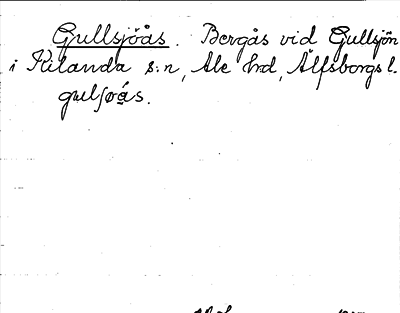 Gullsjöås. Bergås vid Gullsjön
i Kilanda s:n, Ale hrd, Älfsborgs l.
gulʃøás.